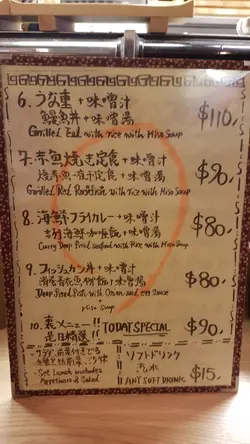 6. うな重 + 味噌汁
鰻魚丼 + 味噌湯
Grilled Eel with rice with Miso Soup
$110.
7. 赤魚焼き定食 + 味噌汁
燒赤魚一夜干定食 + 味噌湯
Grilled Red Rockfish with rice with Miso Soup
$90.
8. 海鮮フライカレー + 味噌汁
吉列海鮮咖喱飯 + 味噌湯
Curry Deep fried seafood with Rice with Miso Soup
$80.
9. フィッシュカツ丼 + 味噌汁
+ 味噌湯
Deep fried fish with Onion and egg sauce
+ Miso Soup
$80.
10. 裏メニュー!! TODAY SPECIAL
是日精選!!
$90.
Set Lunch includes
Appetizers & Salad
ソフトドリンク
汽水
ANY SOFT DRINK
$15.